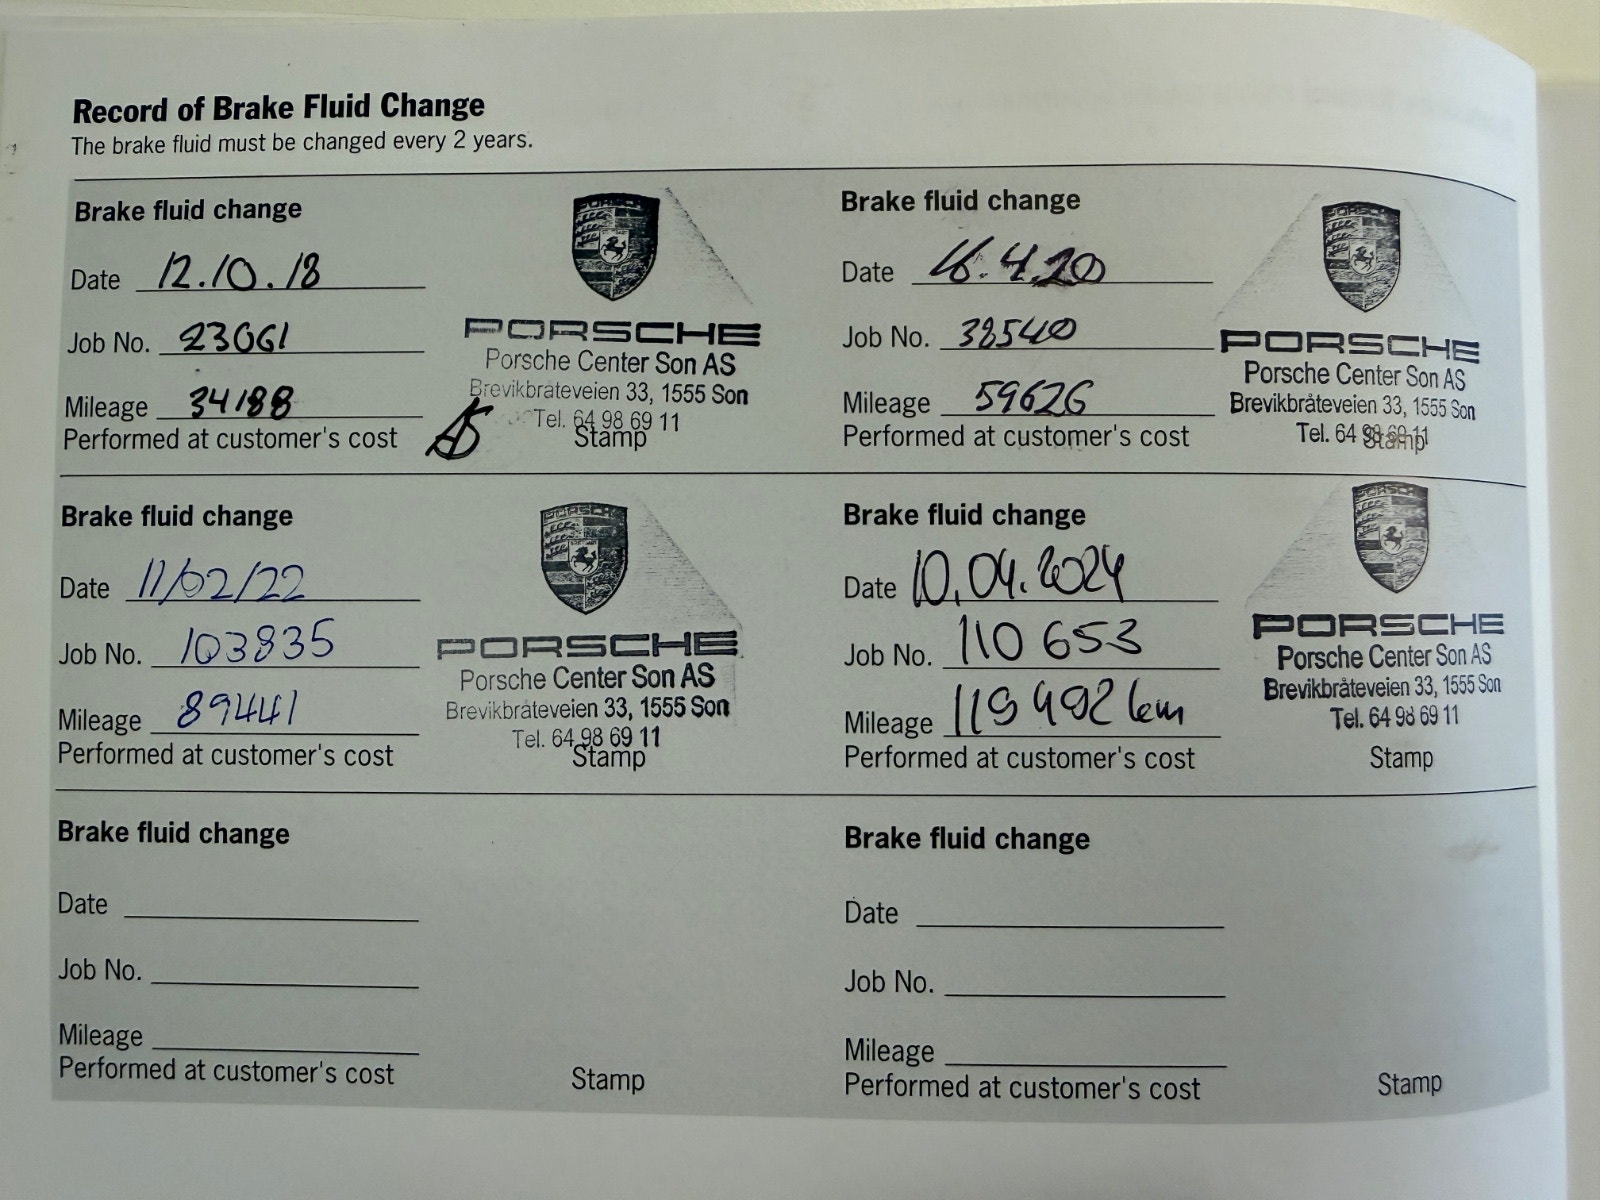 Record of Brake Fluid Change
The brake fluid must be changed every 2 years.
Brake fluid change
Date 12.10.18
Job No. 23061
Mileage 34188
Performed at customer's cost
PORSCHE
PORSCHE
Porsche Center Son AS
Brevikbråteveien 33, 1555 Son
Tel. 64 98 69 11
Stamp
Brake fluid change
Date 16.4.20
Job No. 38540
Mileage 59626
Performed at customer's cost
PORSCHE
PORSCHE
Porsche Center Son AS
Brevikbråteveien 33, 1555 Son
Tel. 64 98 69 11
Stamp
Brake fluid change
Date 11/02/22
Job No. 103835
Mileage 89441
Performed at customer's cost
PORSCHE
PORSCHE
Porsche Center Son AS
Brevikbråteveien 33, 1555 Son
Tel. 64 98 69 11
Stamp
Brake fluid change
Date 10.04.2024
Job No. 110 653
Mileage 119 492 km
Performed at customer's cost
PORSCHE
PORSCHE
Porsche Center Son AS
Brevikbråteveien 33, 1555 Son
Tel. 64 98 69 11
Stamp
Brake fluid change
Date
Job No.
Mileage
Performed at customer's cost
Stamp
Brake fluid change
Date
Job No.
Mileage
Performed at customer's cost
Stamp